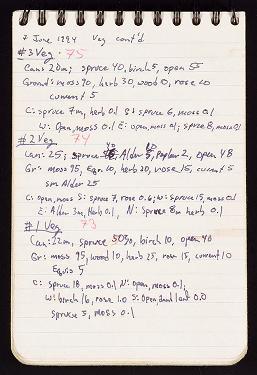 7 June 1994 Veg cont'd
#3 Veg. 75
Can: 20m; spruce 40, birch 5, open 55
Ground: moss 90, herb 30, wood 0, rose 20
current 5
C: spruce 7m, herb 0.1 S: spruce 6, moss 0.1
W: Open, moss 0.1 E: open, moss 0.1; spruce 8, moss 0.1
#2 Veg 74
Can: 25; spruce 40 Alder 5, Poplar 2, open 48
Gr: moss 95, Eqn. 10, herb 20, rose 15, current 5
sm Alder 25
C: open, moss S: spruce 7, rose 0.6; W: spruce 15, moss 0.1
E: Alder 3m, Herb 0.1, N: Spruce 8m herb 0.1
#1 Veg 73
Can: 22m, spruce 50, birch 10, open 40
Gr: moss 95, wood 10, herb 25, rose 15, current 10
Equis 5
C: spruce 18, moss 0.1 N: Open, moss 0.1;
W: birch 16, rose 1.0 S: Open, 0.0
spruce 5, moss 0.1